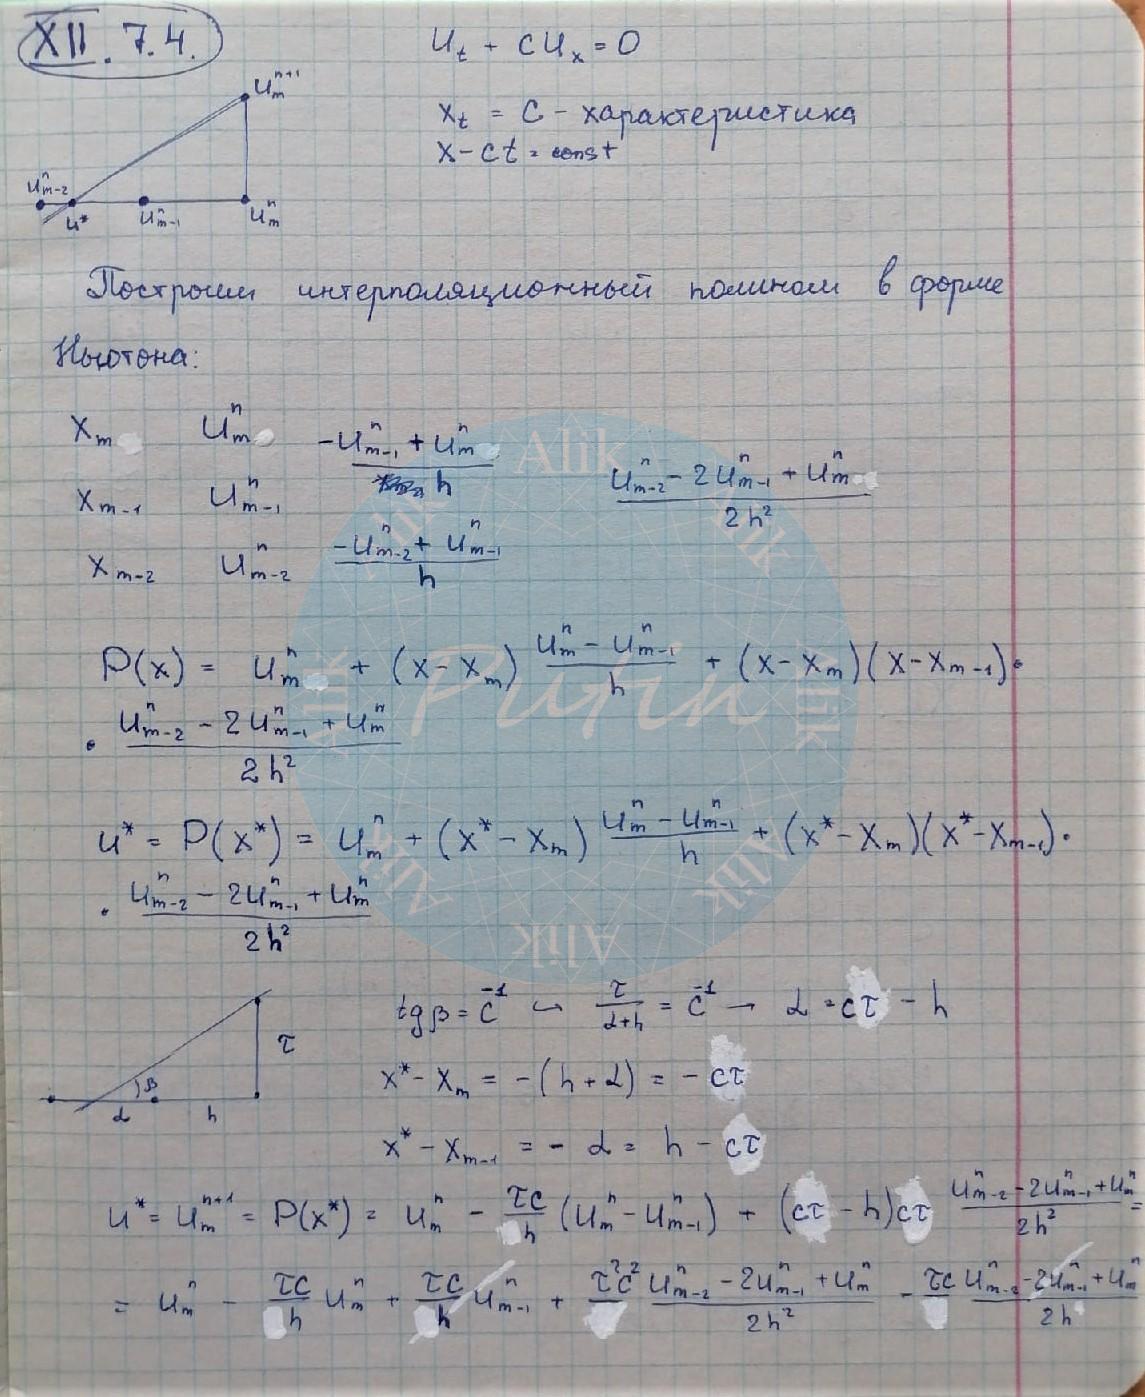 XII. 7.4.
U_t + cU_x = 0
U_m^{n+1}
x_t = c - характеристика
x - ct = const
U_{m-2}^n
u*
U_{m-1}^n
U_m^n
Построим интерполяционный полином в форме
Ньютона:
x_m U_m^n (-U_{m-1}^n + U_m^n)/h
(U_{m-2}^n - 2U_{m-1}^n + U_m^n)/(2h^2)
x_{m-1} U_{m-1}^n
x_{m-2} U_{m-2}^n (-U_{m-2}^n + U_{m-1}^n)/h
P(x) = U_m^n + (x - x_m) (U_m^n - U_{m-1}^n)/h + (x - x_m)(x - x_{m-1}) ·
· (U_{m-2}^n - 2U_{m-1}^n + U_m^n)/(2h^2)
u* = P(x*) = U_m^n + (x* - x_m) (U_m^n - U_{m-1}^n)/h + (x* - x_m)(x* - x_{m-1}) ·
· (U_{m-2}^n - 2U_{m-1}^n + U_m^n)/(2h^2)
tg β = c^{-1} ↪ τ/(α+h) = c^{-1} → α = cτ - h
τ
β
α h
x* - x_m = -(h + α) = -cτ
x* - x_{m-1} = -α = h - cτ
u* = U_m^{n+1} = P(x*) = U_m^n - τc/h (U_m^n - U_{m-1}^n) + (cτ - h)cτ (U_{m-2}^n - 2U_{m-1}^n + U_m^n)/(2h^2) =
= U_m^n - τc/h U_m^n + τc/h U_{m-1}^n + τ^2c^2 (U_{m-2}^n - 2U_{m-1}^n + U_m^n)/(2h^2) - τc (U_{m-2}^n - 2U_{m-1}^n + U_m^n)/(2h)
Alik
Alik
Alik
Alik
Alik
Alik
Alik
Alik
Putin